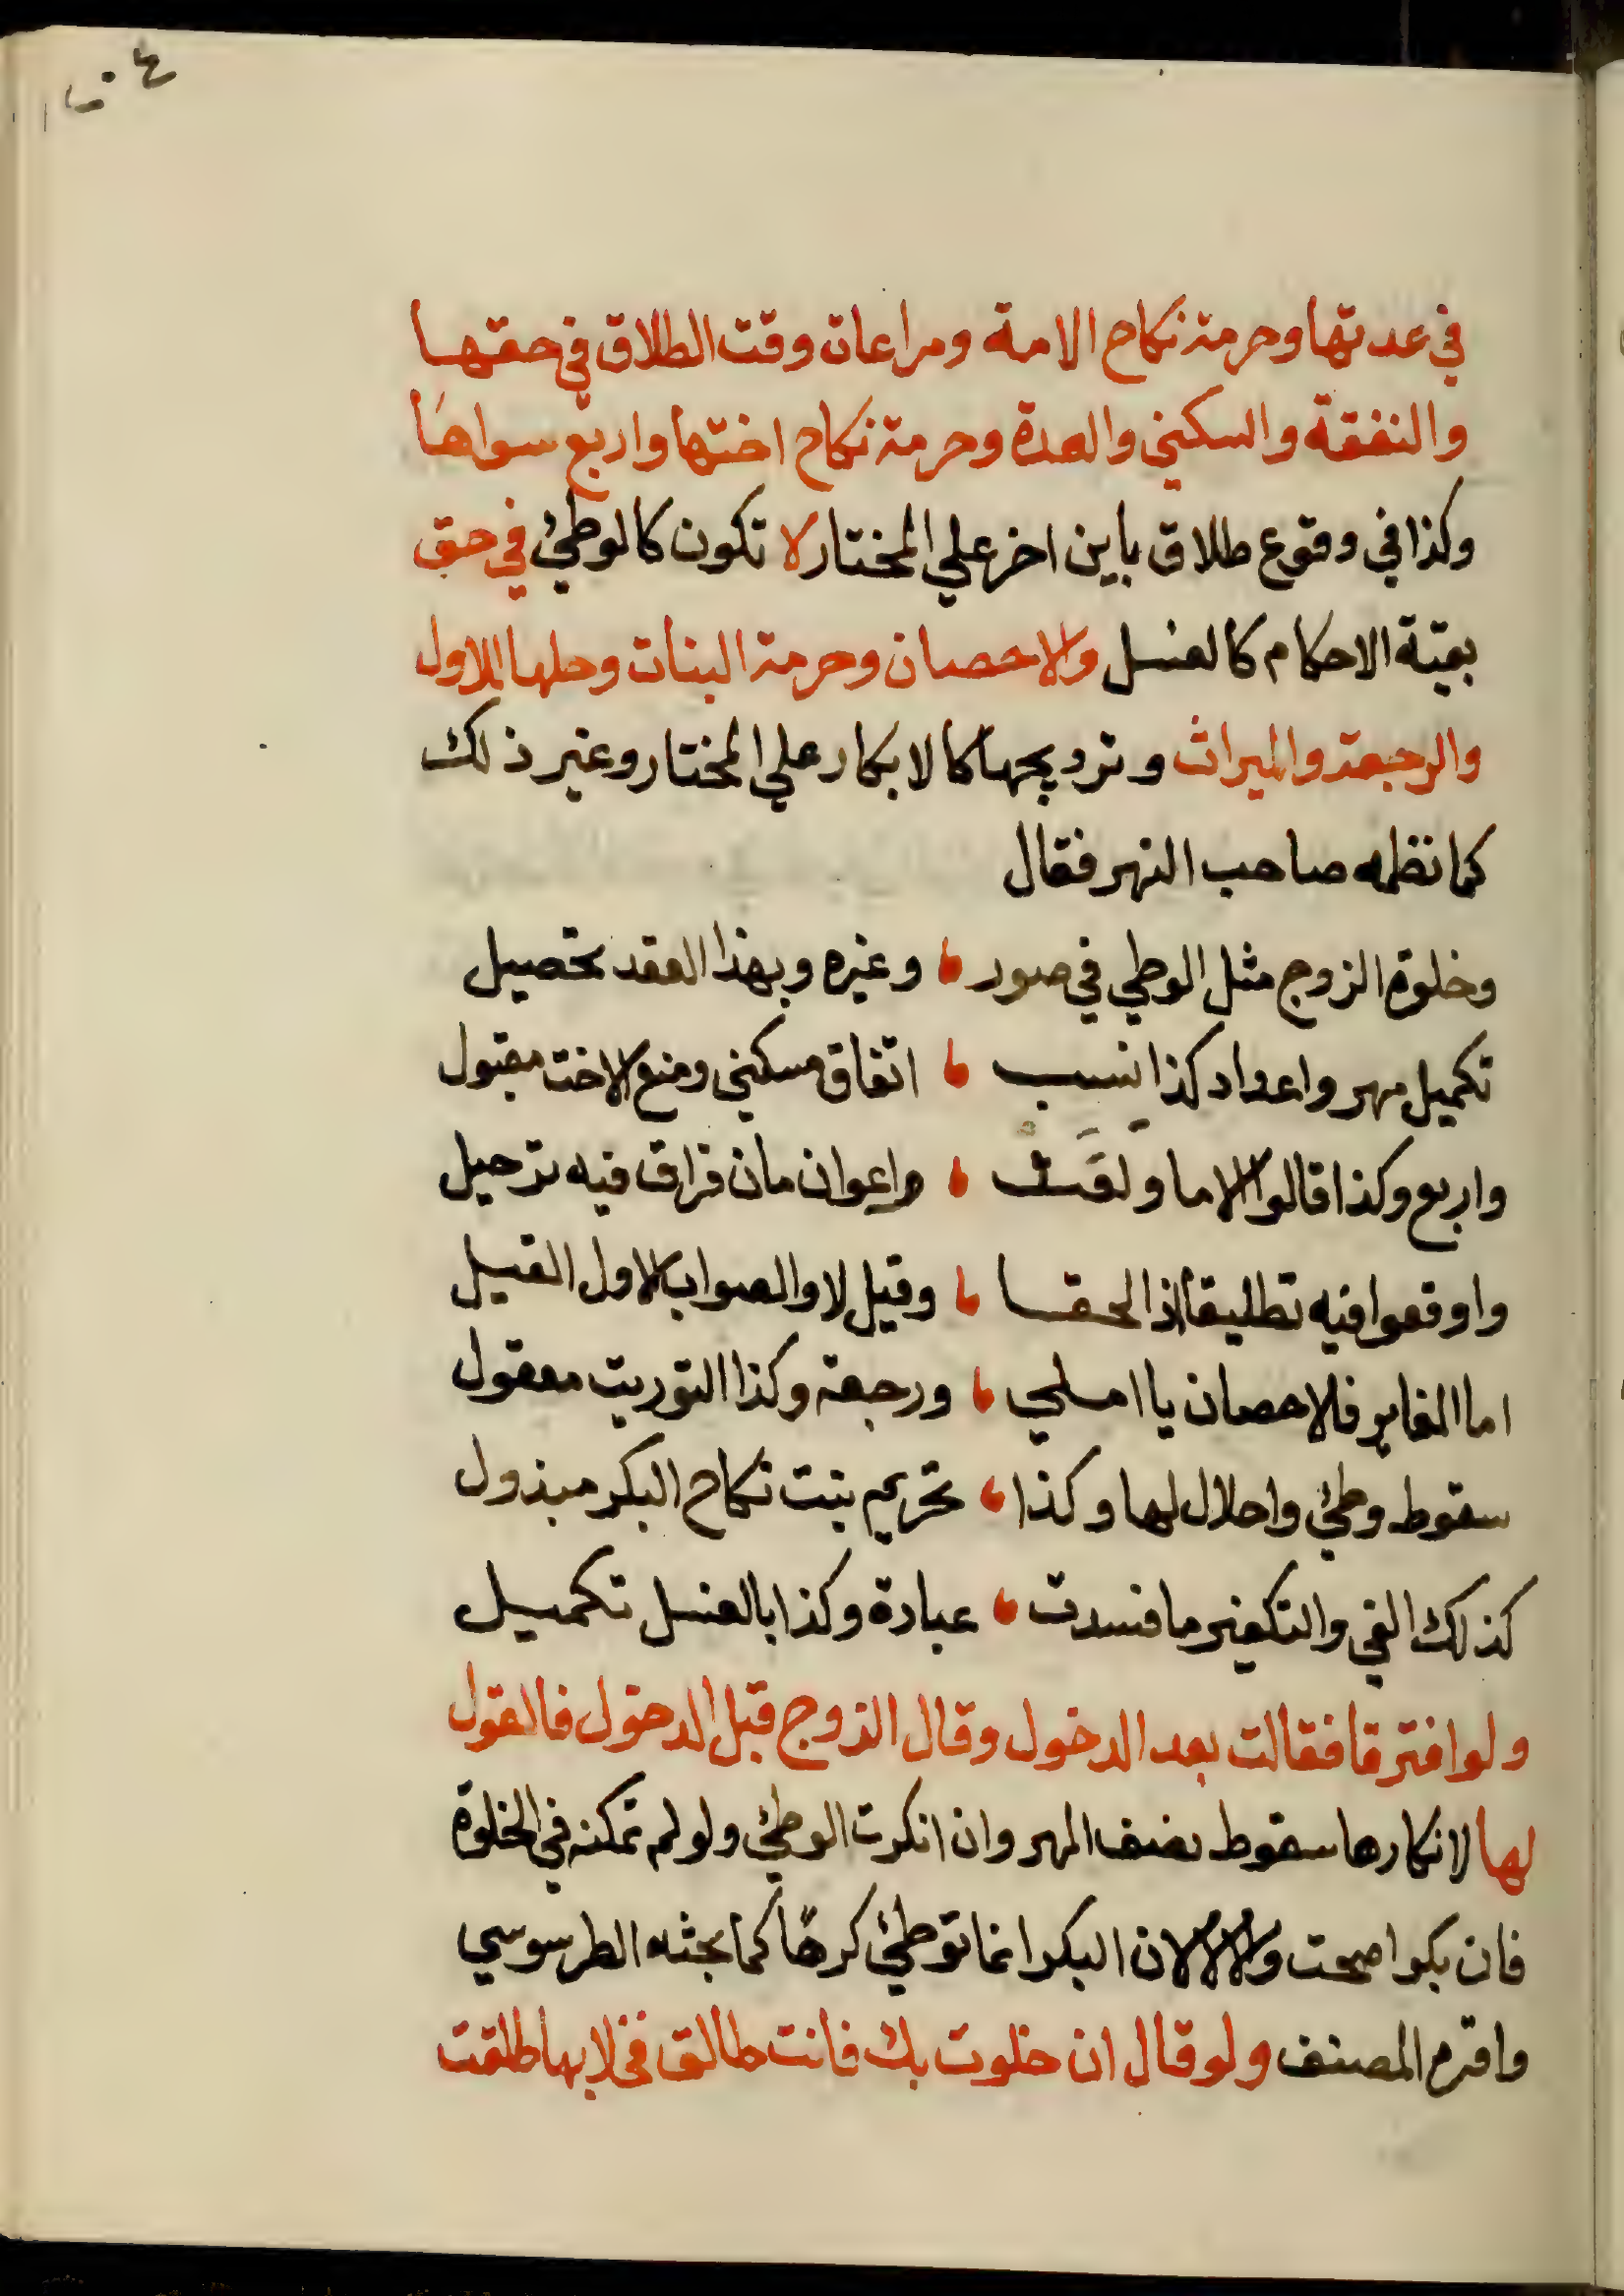 في عدتها وحرمة نكاح الامة ومراعات وقت الطلاق في حقها
والنفقة والسكني والعدة وحرمة نكاح اختها واربع سواها
وكذا في وقوع طلاق باين اخر علي المختار لا تكون كالوطئ في حق
بقية الاحكام كالغسل والاحصان وحرمة البنات وحلها للاول
والرجعة والميراث وتزويجها كالابكار علي المختار وغير ذلك
كما نظمه صاحب النهر فقال
وخلوة الزوج مثل الوطي في صور وغيره وبهذا العقد تحصيل
تكميل مهر واعداد كذا نسب اتفاق سكني ومنع الاخت مقبول
واربع وكذا قالوا الاما ولقد راعوا زمان فراق فيه ترحيل
واوقعوا فيه تطليقا اذا لحقا وقيل لا والصواب الاول القيل
اما المغاير فالاحصان يا املي ورجعة وكذا التوريت معقول
سقوط وطئ واحلال لها وكذا تحريم بنت نكاح البكر مبذول
كذلك الفي والتكفير ما فسدت عبادة وكذا بالغسل تكميل
ولو افترقا فقالت بعد الدخول وقال الزوج قبل الدخول فالقول
لها لانكارها سقوط نصف المهر وان انكرت الوطئ ولو لم تمكنه في الخلوة
فان بكرا صحت والا لا لان البكر انما توطئ كرها كما بحثه الطرسوسي
واقره المصنف ولو قال ان خلوت بك فانت طالق فخلا بها طلقت